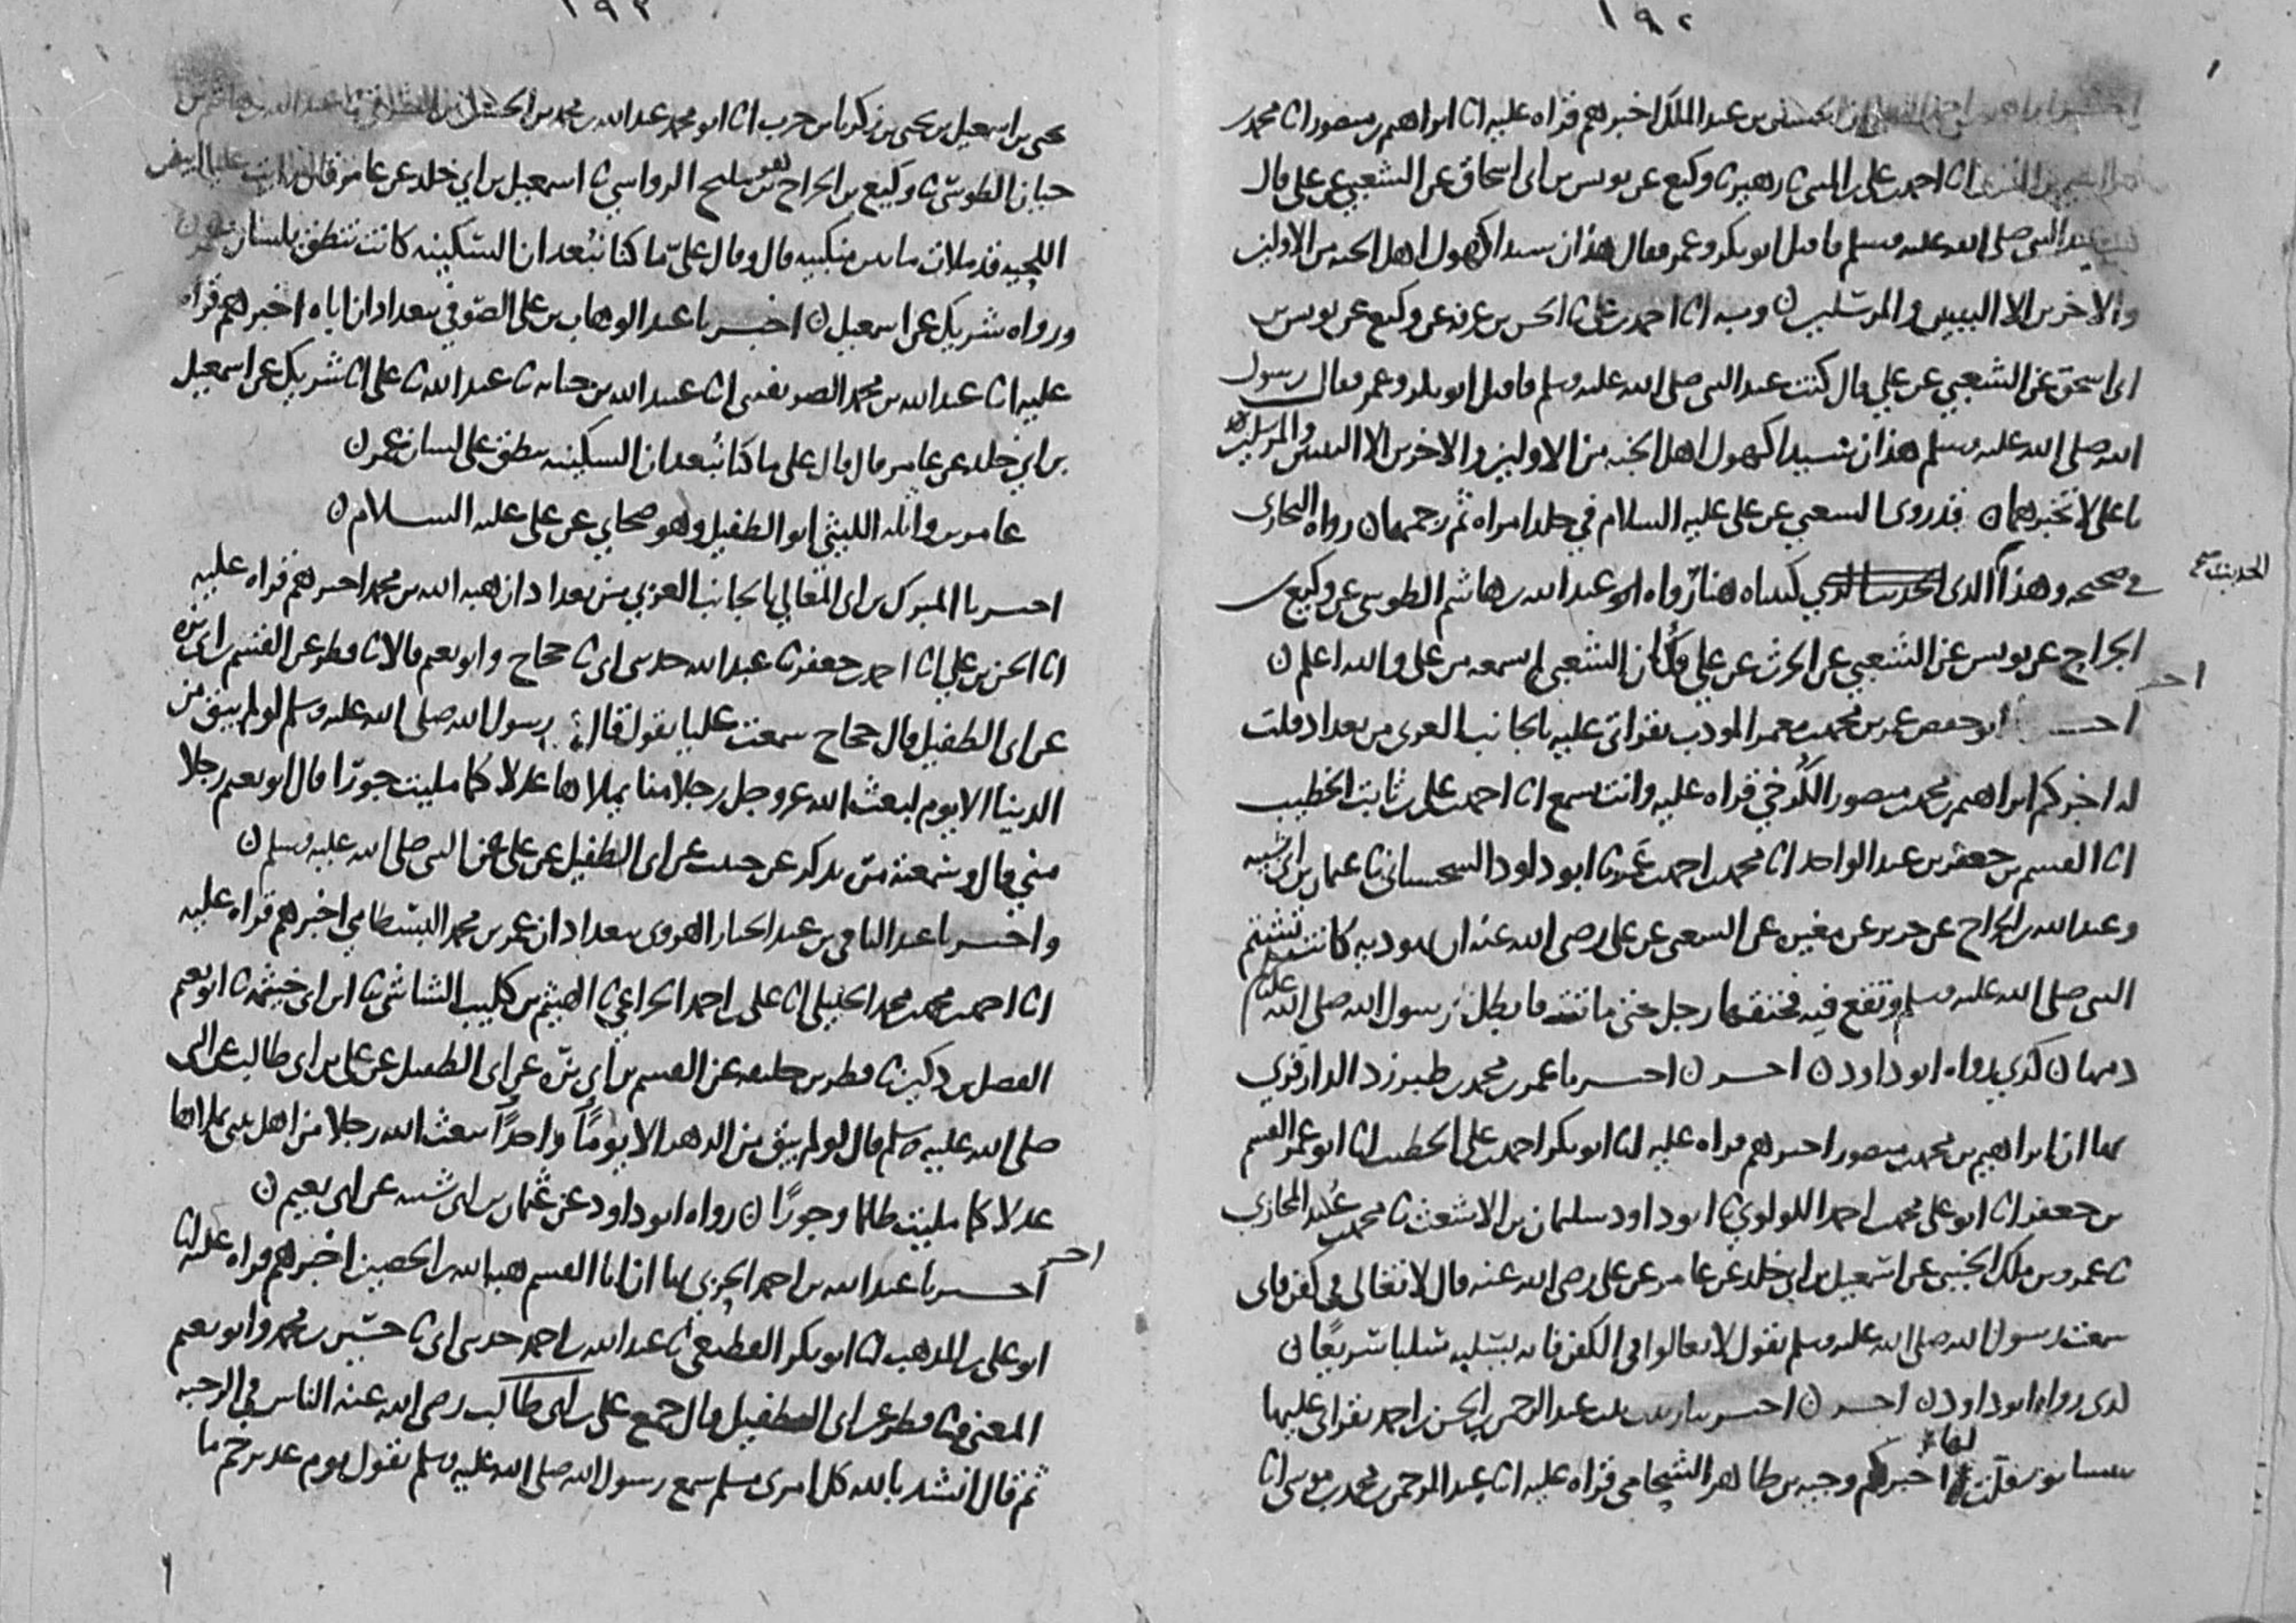 ١٩٢
بن عبد الملك اخبرهم قراه عليه انا ابراهيم بن منصور انا محمد بن
انا احمد بن علي بن المثنى ثنا زهير ثنا وكيع عن يونس بن ابي اسحاق عن الشعبي عن علي قال
عند النبي صلى الله عليه وسلم فاقبل ابو بكر وعمر فقال هذان سيدا كهول اهل الجنه من الاولين
والاخرين الا النبيين والمرسلين ن وبه انا احمد بن علي ثنا الحسن بن عرفه عن وكيع عن يونس بن
ابي اسحق عن الشعبي عن علي قال كنت عند النبي صلى الله عليه وسلم فاقبل ابو بكر وعمر فقال رسول
الله صلى الله عليه وسلم هذان سيدا كهول اهل الجنه من الاولين والاخرين الا النبيين والمرسلين
يا علي لا تخبرهما ن قد روى الشعبي عن علي عليه السلام في جلد امراه ثم رجمها ن رواه البخاري
في صحيحه وهذا الذي كتبناه هنا رواه عبد الله بن هاشم الطوسي عن وكيع بن
الحديث صح
الجراح عن يونس عن الشعبي عن الحرث عن علي وكان الشعبي لم يسمعه من علي والله اعلم ن
اخر
ابو حفص عمر بن محمد بن معمر المودب بقراتي عليه بالجانب الغربي من بغداد قلت
له اخبركم ابراهيم بن محمد بن منصور الكرخي قراه عليه وانت تسمع انا احمد بن علي بن ثابت الخطيب
انا القسم بن جعفر بن عبد الواحد انا محمد بن احمد بن عمرو ثنا ابو داود السجستاني ثنا عثمان بن ابي شيبه
وعبد الله بن الجراح عن جرير عن مغيره عن الشعبي عن علي رضي الله عنه ان يهوديه كانت تشتم
النبي صلى الله عليه وسلم وتقع فيه فخنقها رجل حتى ماتت فابطل رسول الله صلى الله عليه وسلم
دمها ن كذى رواه ابو داود ن اخر ن اخبرنا عمر بن محمد بن طبرزد الدارقزي
بها ان ابراهيم بن محمد بن منصور اخبرهم قراه عليه انا ابو بكر احمد بن علي الخطيب انا ابو عمر القسم
بن جعفر انا ابو علي محمد بن احمد اللولوي ثنا ابو داود سليمان بن الاشعث ثنا محمد بن عبيد المحاربي
ثنا عمرو بن ملك الجنبي عن اسمعيل بن ابي خلد عن عامر عن علي رضي الله عنه قال لا تغالي في كفن فاني
سمعت رسول الله صلى الله عليه وسلم يقول لا تغالوا في الكفن فانه يسلبه سلبا سريعا ن
كذى رواه ابو داود ن اخر ن اخبرتنا زينب بنت عبد الرحمن بن الحسن بن احمد بقراتي عليها
بنيسابور قلت لها اخبركم وجيه بن طاهر الشحامي قراه عليه انا عبد الرحمن بن محمد بن موسى انا
١٩٣
يحيى بن اسمعيل بن يحيى بن زكريا بن حرب انا ابو محمد عبد الله بن محمد بن الحسن بن ثنا عبد الله بن هاشم بن
حيان الطوسي ثنا وكيع بن الجراح بن مليح الرواسي ثنا اسمعيل بن ابي خلد عن عامر قال رايت عليا ابيض
اللحيه قد ملات ما بين منكبيه قال وقال علي ما كنا نبعد ان السكينه كانت تنطق بلسان عمر ن
ورواه شريك عن اسمعيل ن اخبرنا عبد الوهاب بن علي الصوفي ببغداد ان اباه اخبرهم قراه
عليه انا عبد الله بن محمد الصريفيني انا عبيد الله بن حبابه ثنا عبد الله ثنا علي انا شريك عن اسمعيل
بن ابي خلد عن عامر قال قال علي ما كنا نبعد ان السكينه تنطق على لسان عمر ن
عامر بن واثله الليثي ابو الطفيل وهو صحابي عن علي عليه السلام ن
اخبرنا المبرك بن ابي المعالي بالجانب الغربي من بغداد ان هبه الله بن محمد اخبرهم قراه عليه
انا الحسن بن علي انا احمد بن جعفر ثنا عبد الله حدثني ابي ثنا حجاج وابو نعيم قالا ثنا فطر عن القسم بن ابي بزه
عن ابي الطفيل قال حجاج سمعت عليا يقول قال رسول الله صلى الله عليه وسلم لو لم يبق من
الدنيا الا يوم لبعث الله عز وجل رجلا منا يملاها عدلا كما مليت جورا قال ابو نعيم رجلا
مني قال وسمعته مره يذكر عن حبيب عن ابي الطفيل عن علي عن النبي صلى الله عليه وسلم ن
واخبرنا عبد الباقي بن عبد الجبار الهروي ببغداد ان عمر بن محمد البسطامي اخبرهم قراه عليه
انا احمد بن محمد بن محمد الخليلي انا علي بن احمد الخزاعي ثنا الهيثم بن كليب الشاشي ثنا ابن ابي خيثمه ثنا ابو نعيم
الفضل بن دكين ثنا فطر بن خليفه عن القسم بن ابي بزه عن ابي الطفيل عن علي بن ابي طالب عن النبي
صلى الله عليه وسلم قال لو لم يبق من الدهر الا يوما واحدا لبعث الله رجلا من اهل بيتي يملاها
عدلا كما مليت ظلما وجورا ن رواه ابو داود عن عثمان بن ابي شيبه عن ابي نعيم ن
اخر
اخبرنا عبد الله بن احمد الحربي بها ان ابا القسم هبه الله بن الحصين اخبرهم قراه عليه انا
ابو علي بن المذهب انا ابو بكر القطيعي ثنا عبد الله بن احمد حدثني ابي ثنا حسين بن محمد وابو نعيم
المعنى قالا ثنا فطر عن ابي الطفيل قال جمع علي بن ابي طالب رضي الله عنه الناس في الرحبه
ثم قال انشد بالله كل امرى مسلم سمع رسول الله صلى الله عليه وسلم يقول يوم غدير خم ما